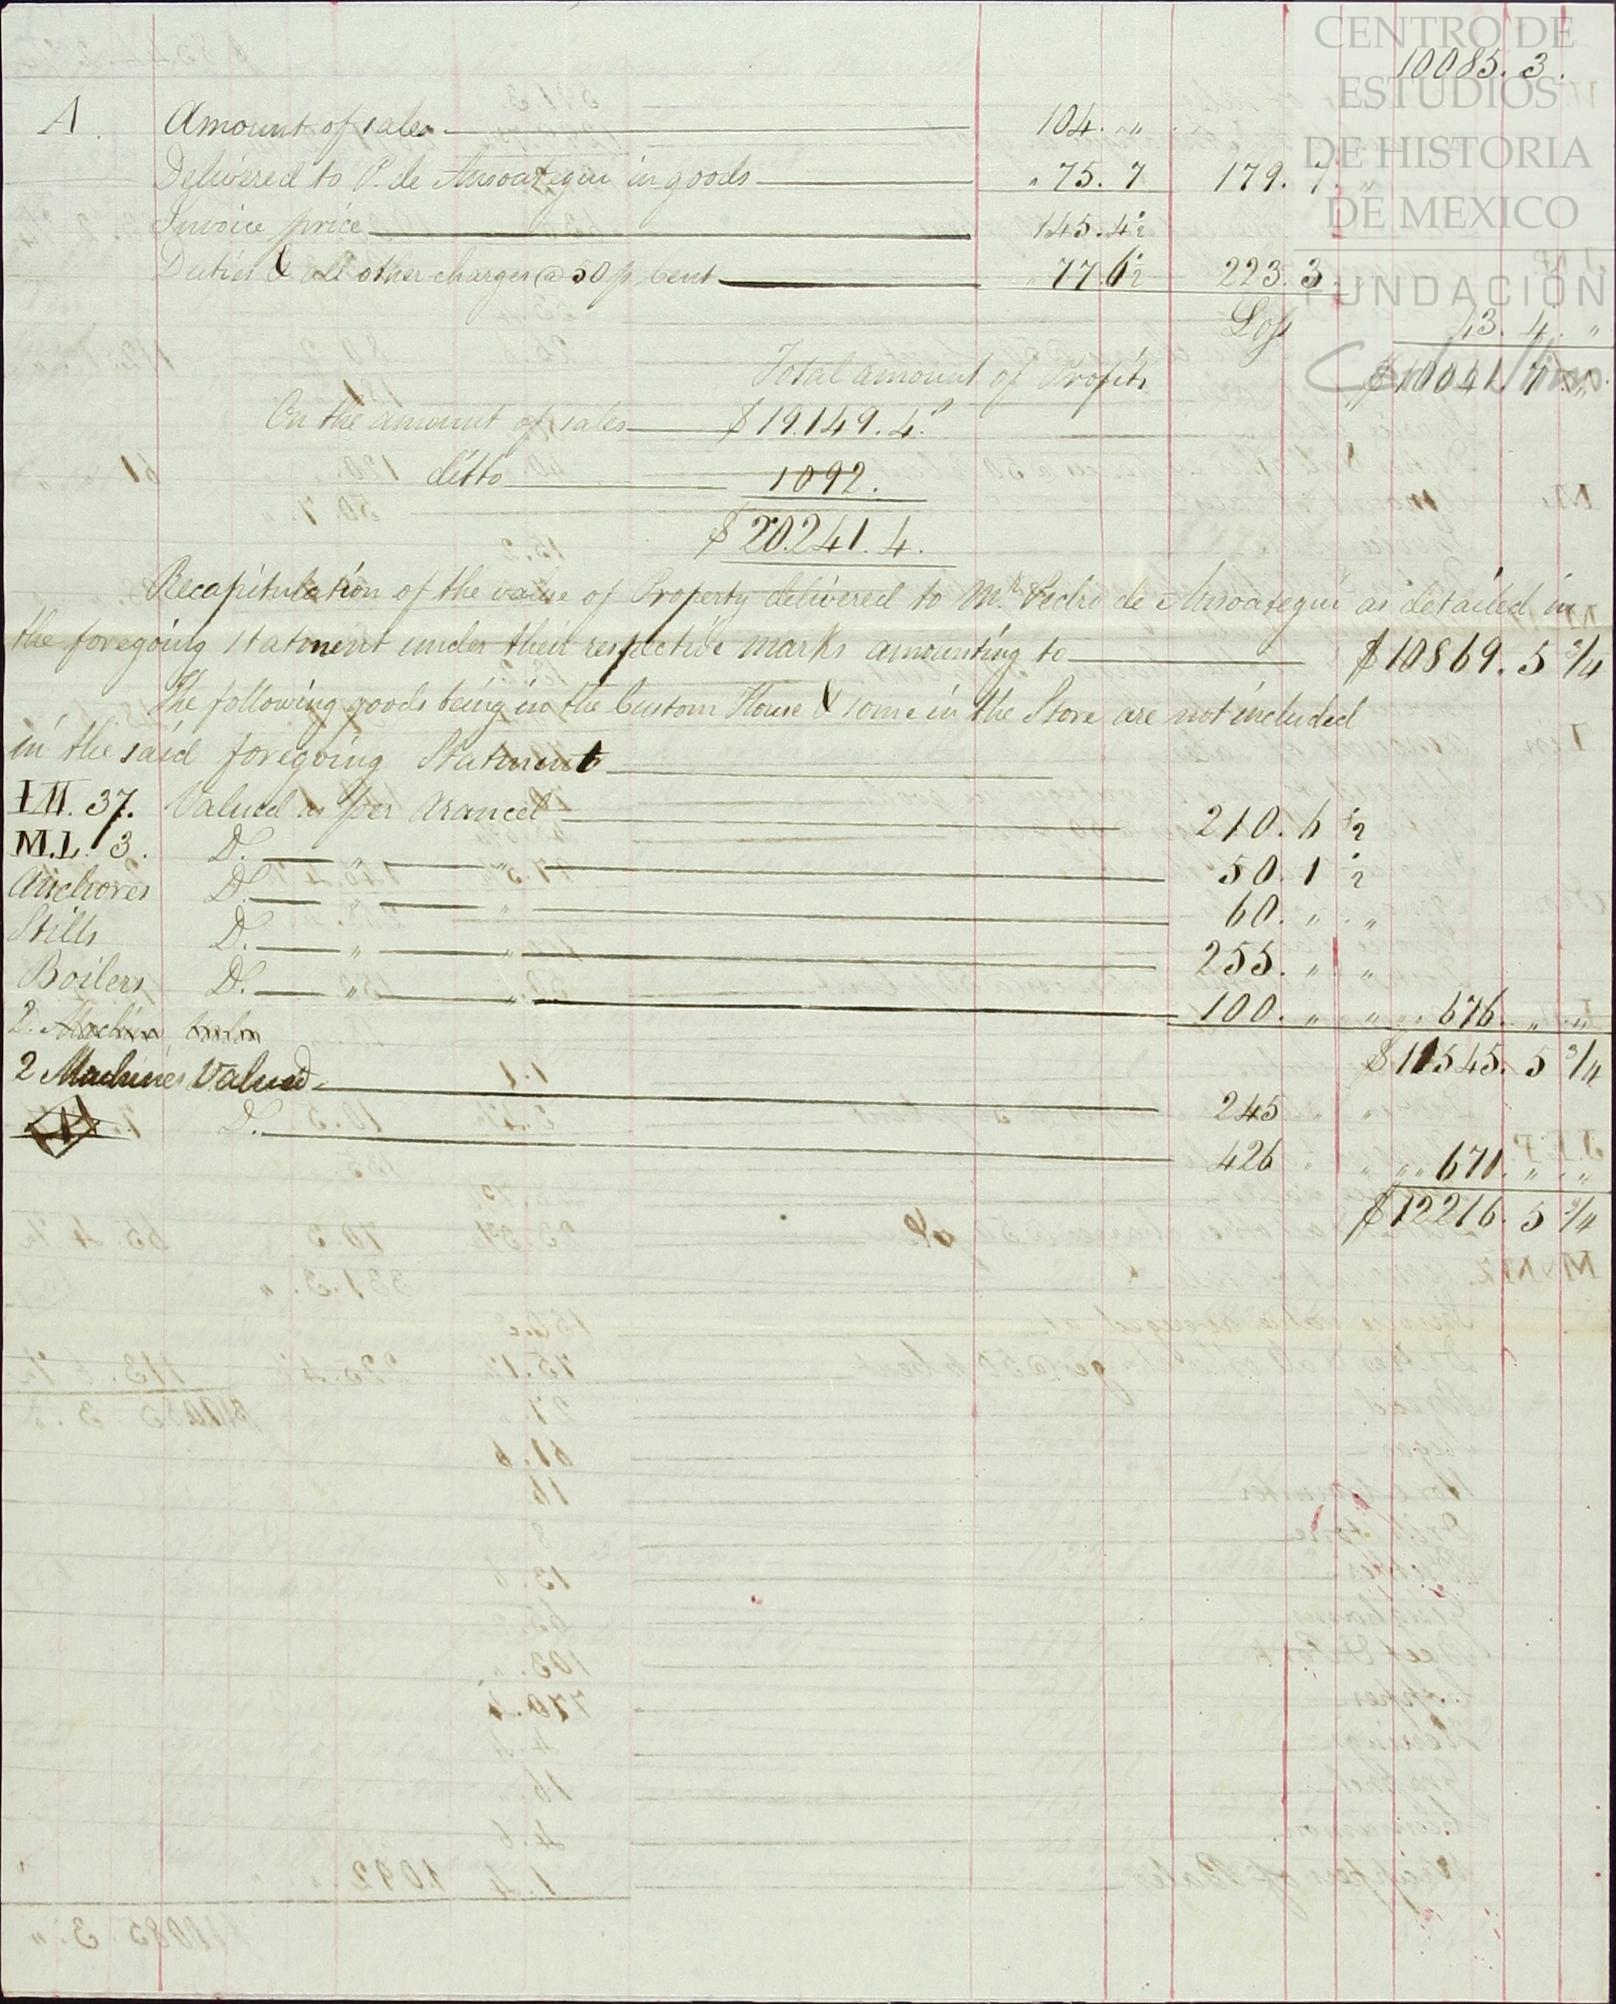 CENTRO DE
ESTUDIOS
DE HISTORIA
DE MEXICO
FUNDACIÓN
10085. 3.
A. Amount of sales 104. „
Delivered to P. de Ansoategui in goods „ 75. 7 179. 7. „
Invoice price 145. 4 ½
Duties & all other charges @ 50 p. cent „ 77. 6 ½ 223. 3
Loss 43. 4. „
Total amount of Profits $ 10041. 7. „
On the amount of sales $ 19.149. 4.
ditto 1092.
$ 20.241. 4.
Recapitulation of the value of Property delivered to Mr. Pedro de Ansoategui as detailed in
the foregoing statment under their respective marks amounting to $ 10869. 5 3/4
The following goods being in the Custom House & some in the Store are not included
in the said foregoing Statment
I H. 37. Valued as per Arancel 210. 6 ½
M.L. 3. D. „ „ 50. 1 ½
Anchores D. „ „ 60. „ „
Stills D. „ „ 255. „ „
Boilers D. „ „ 100. „ „ 676. „ „
2. Machin
2 Machines Valued 245 $ 11545. 5 3/4
D. 426 „ „ 671. „ „
$ 12216. 5 3/4